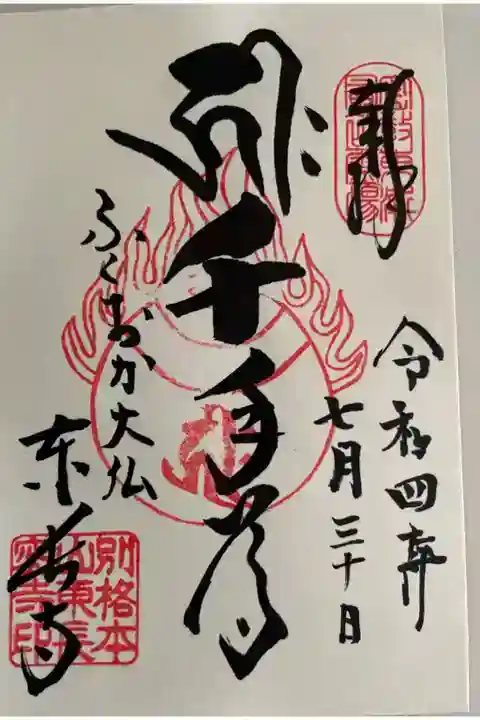 奉拝
令和四年
七月三十日
千手尊
ふくおか大仏
东長寺
別格本
山東長
密寺印